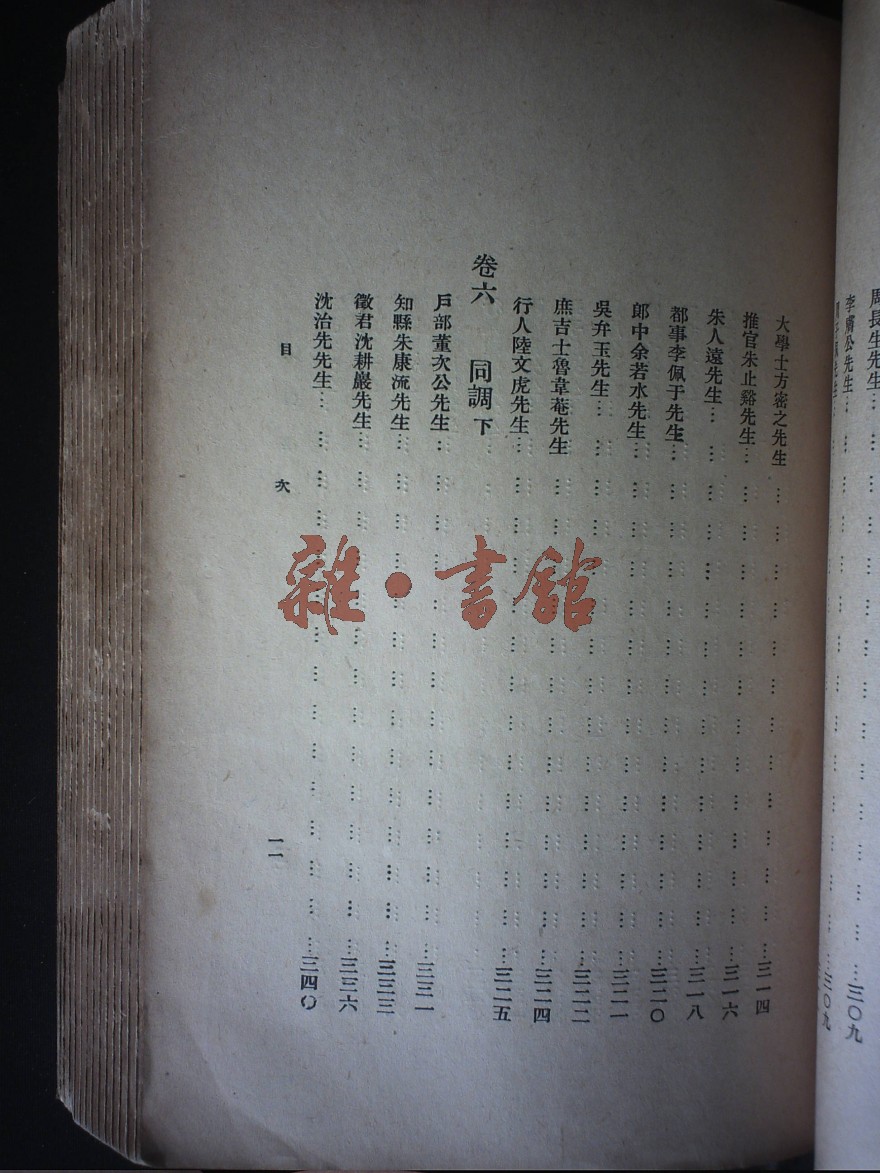 周長生先生…三〇九
大學士方密之先生…三一四
推官朱止谿先生…三一六
朱人遠先生…三一八
都事李佩于先生…三二〇
郎中余若水先生…三二一
吳弁玉先生…三二二
庶吉士魯韋菴先生…三二四
行人陸文虎先生…三二五
卷六　同調下
戶部董次公先生…三三一
知縣朱康流先生…三三三
徵君沈耕巖先生…三三六
沈治先先生…三四〇
目次　一一
雜·書館